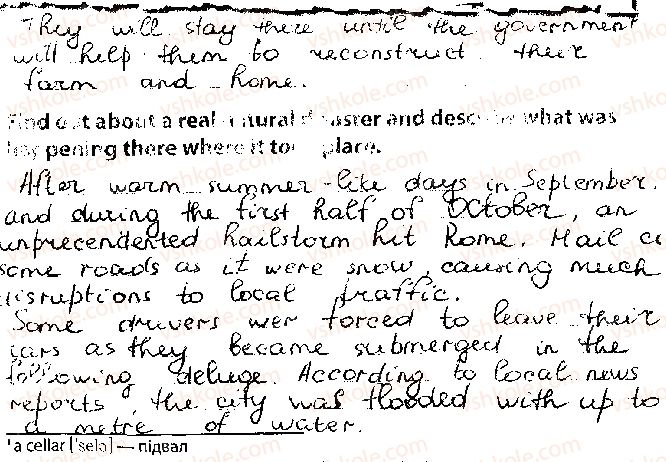 They will stay there until the government
will help them to reconstruct their
farm and home.
Find out about a real natural disaster and describe what was
happening there where it took place.
After warm summer-like days in September
and during the first half of October, an
unprecendented hailstorm hit Rome. Hail
some roads as it were snow, causing much
disruptions to local traffic.
Some drivers wer forced to leave their
cars as they became submerged in the
following deluge. According to local news
reports, the city was flooded with up to
a metre of water.
¹a cellar ['selə] — підвал